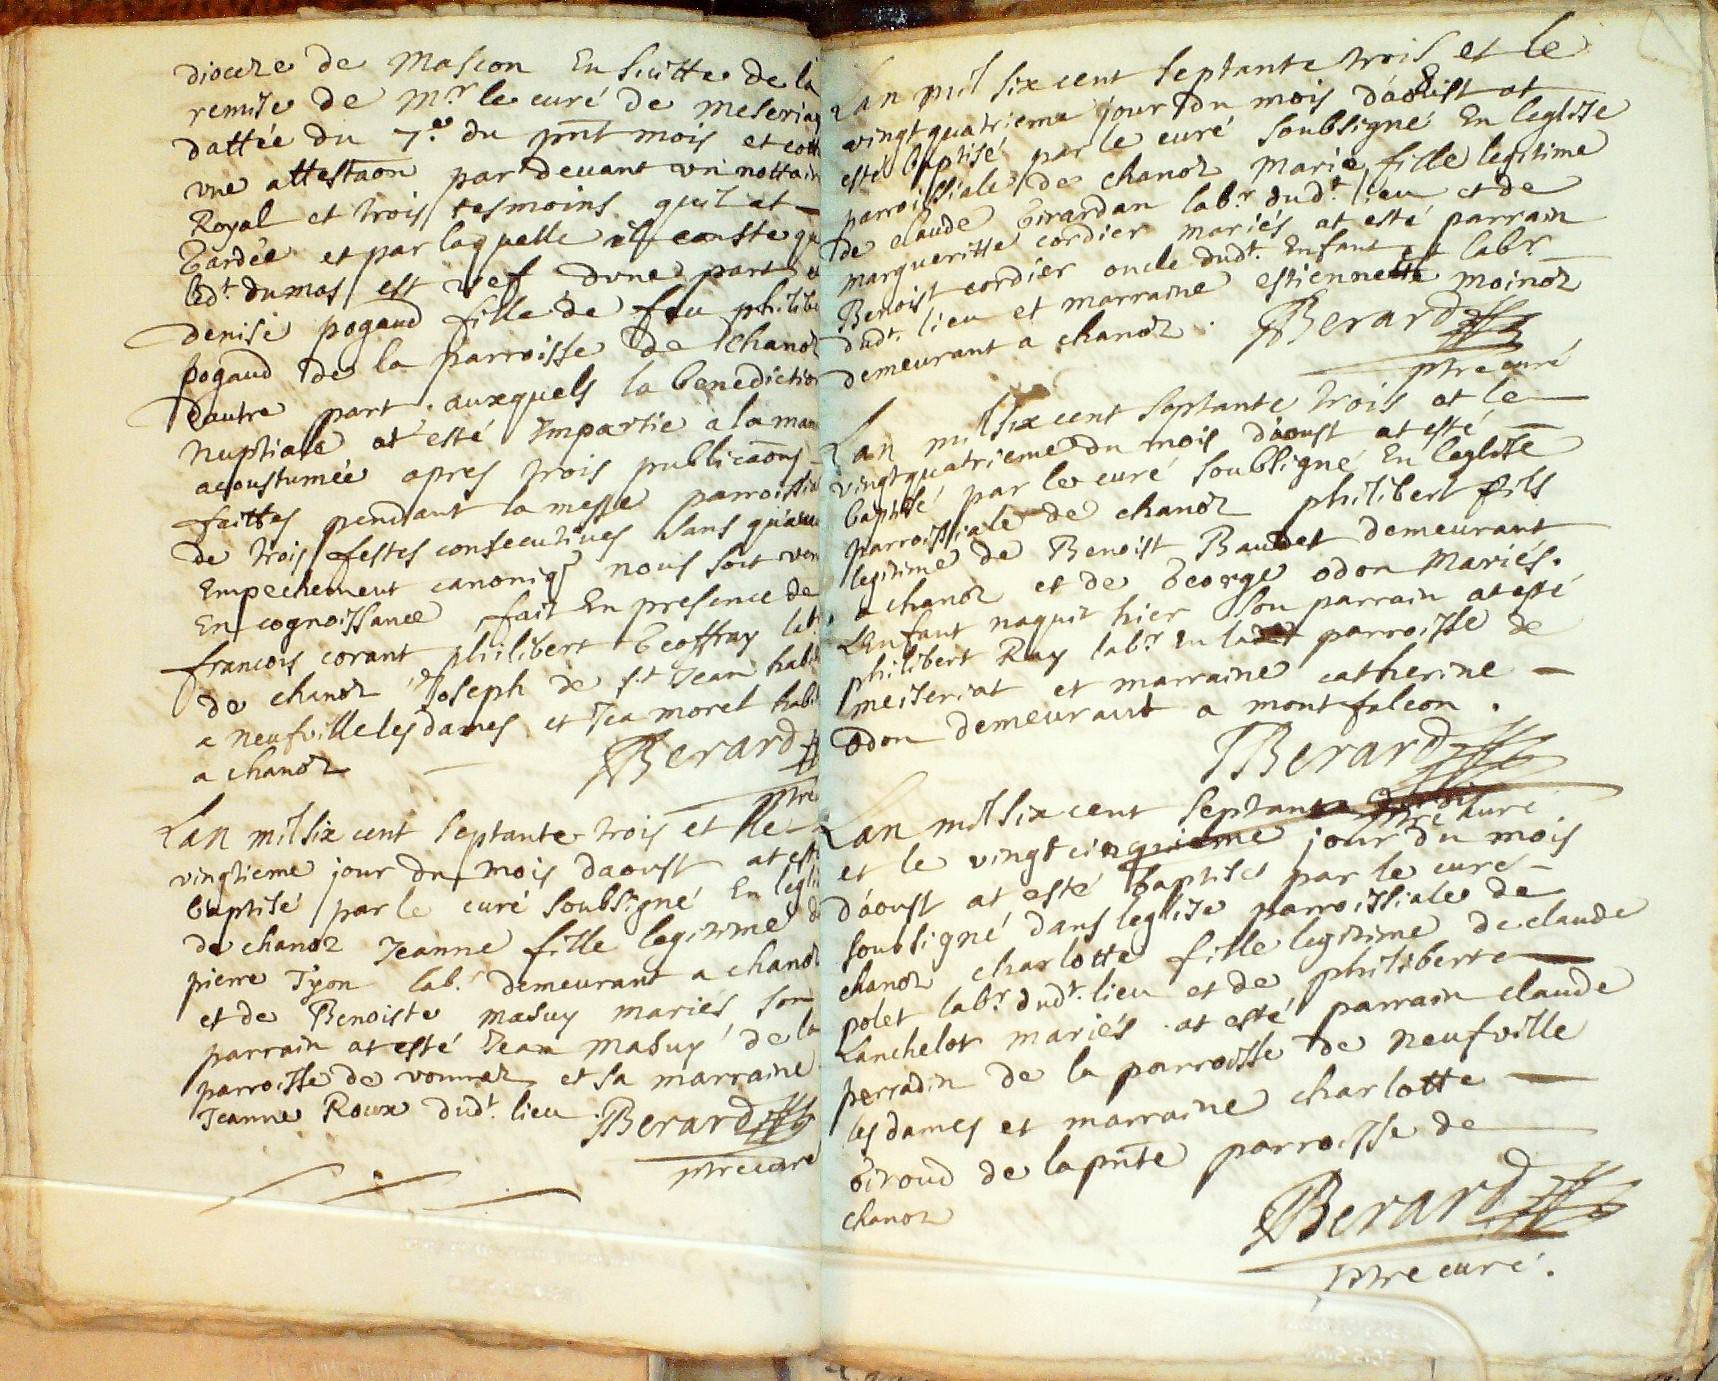 dioceze de Mascon En Suitte de la
remise de Mr. le curé de meseria
dattée du 7.e du pnt mois et
vne attestaon par devant vn nottai
Royal et trois tesmoins quil at
Gardée et par laquelle il conste qu
led.t dumas est vef dvne part et
denise pogaud fille de feu philibe
pogaud de la parroisse de Chanoz
dautre part. auxquels la benediction
Nuptiale at esté Impartie a la man
acoustumée apres trois publicaōns
faittes pendant la messe parroissia
de trois festes consecutives sans qu'aucu
Empechement canoniq nous soit ven
En cognoissance fait En presence de
francois corant philibert Geoffray lab
de chanoz Joseph de s.t Jean habi
a neufville les dames et Jea morel habi
a chanoz Berard
ptre
Lan mil six cent septante trois et le
vingtieme jour du mois daoust at est
baptisé par le curé soubsigné En legli
de chanoz Jeanne fille legitime d
pierre Tyon lab.r demeurant a chanoz
et de Benoiste masuy mariés son
parrain at esté Jean masuy de la
parroisse de vonnaz et sa marraine
Jeanne Roux dud.t lieu. Berard
ptre curé
Lan mil six cent septante trois et le
vingtquatrieme jour du mois d'aoust at
esté baptisé par le curé soubsigné En leglise
parroissiale de chanoz Marie fille legitime
de claude Girardan lab.r dud.t lieu et de
margueritte cordier mariés at esté parrain
Benoist cordier oncle dud.t Enfant lab.r
dud.t lieu et marraine estiennette moinoz
demeurant a chanoz. Berard
ptre curé
Lan mil six cent septante trois et le
vingtquatrieme du mois d'aoust at esté
baptisé par le curé soubsigné En leglise
parroissiale de chanoz philibert fils
legitime de Benoist Baudet demeurant
a chanoz et de George odon Mariés.
LEnfant naquit hier son parrain at esté
philibert Ray lab.r En la parroisse de
meiseriat et marraine catherine
Odon demeurant a montfalcon.
Berard
ptre curé
Lan mil six cent septante trois
et le vingt cinquieme jour du mois
d'aoust at esté baptisé par le curé
soubsigné dans leglise parroissiale de
chanoz charlotte fille legitime de claude
polet lab.r dud.t lieu et de philiberte
Lanchelot mariés at esté parrain claude
perradin de la parroisse de neufville
les dames et marraine charlotte
Giroud de la pnte parroisse de
chanoz
Berard
ptre curé.